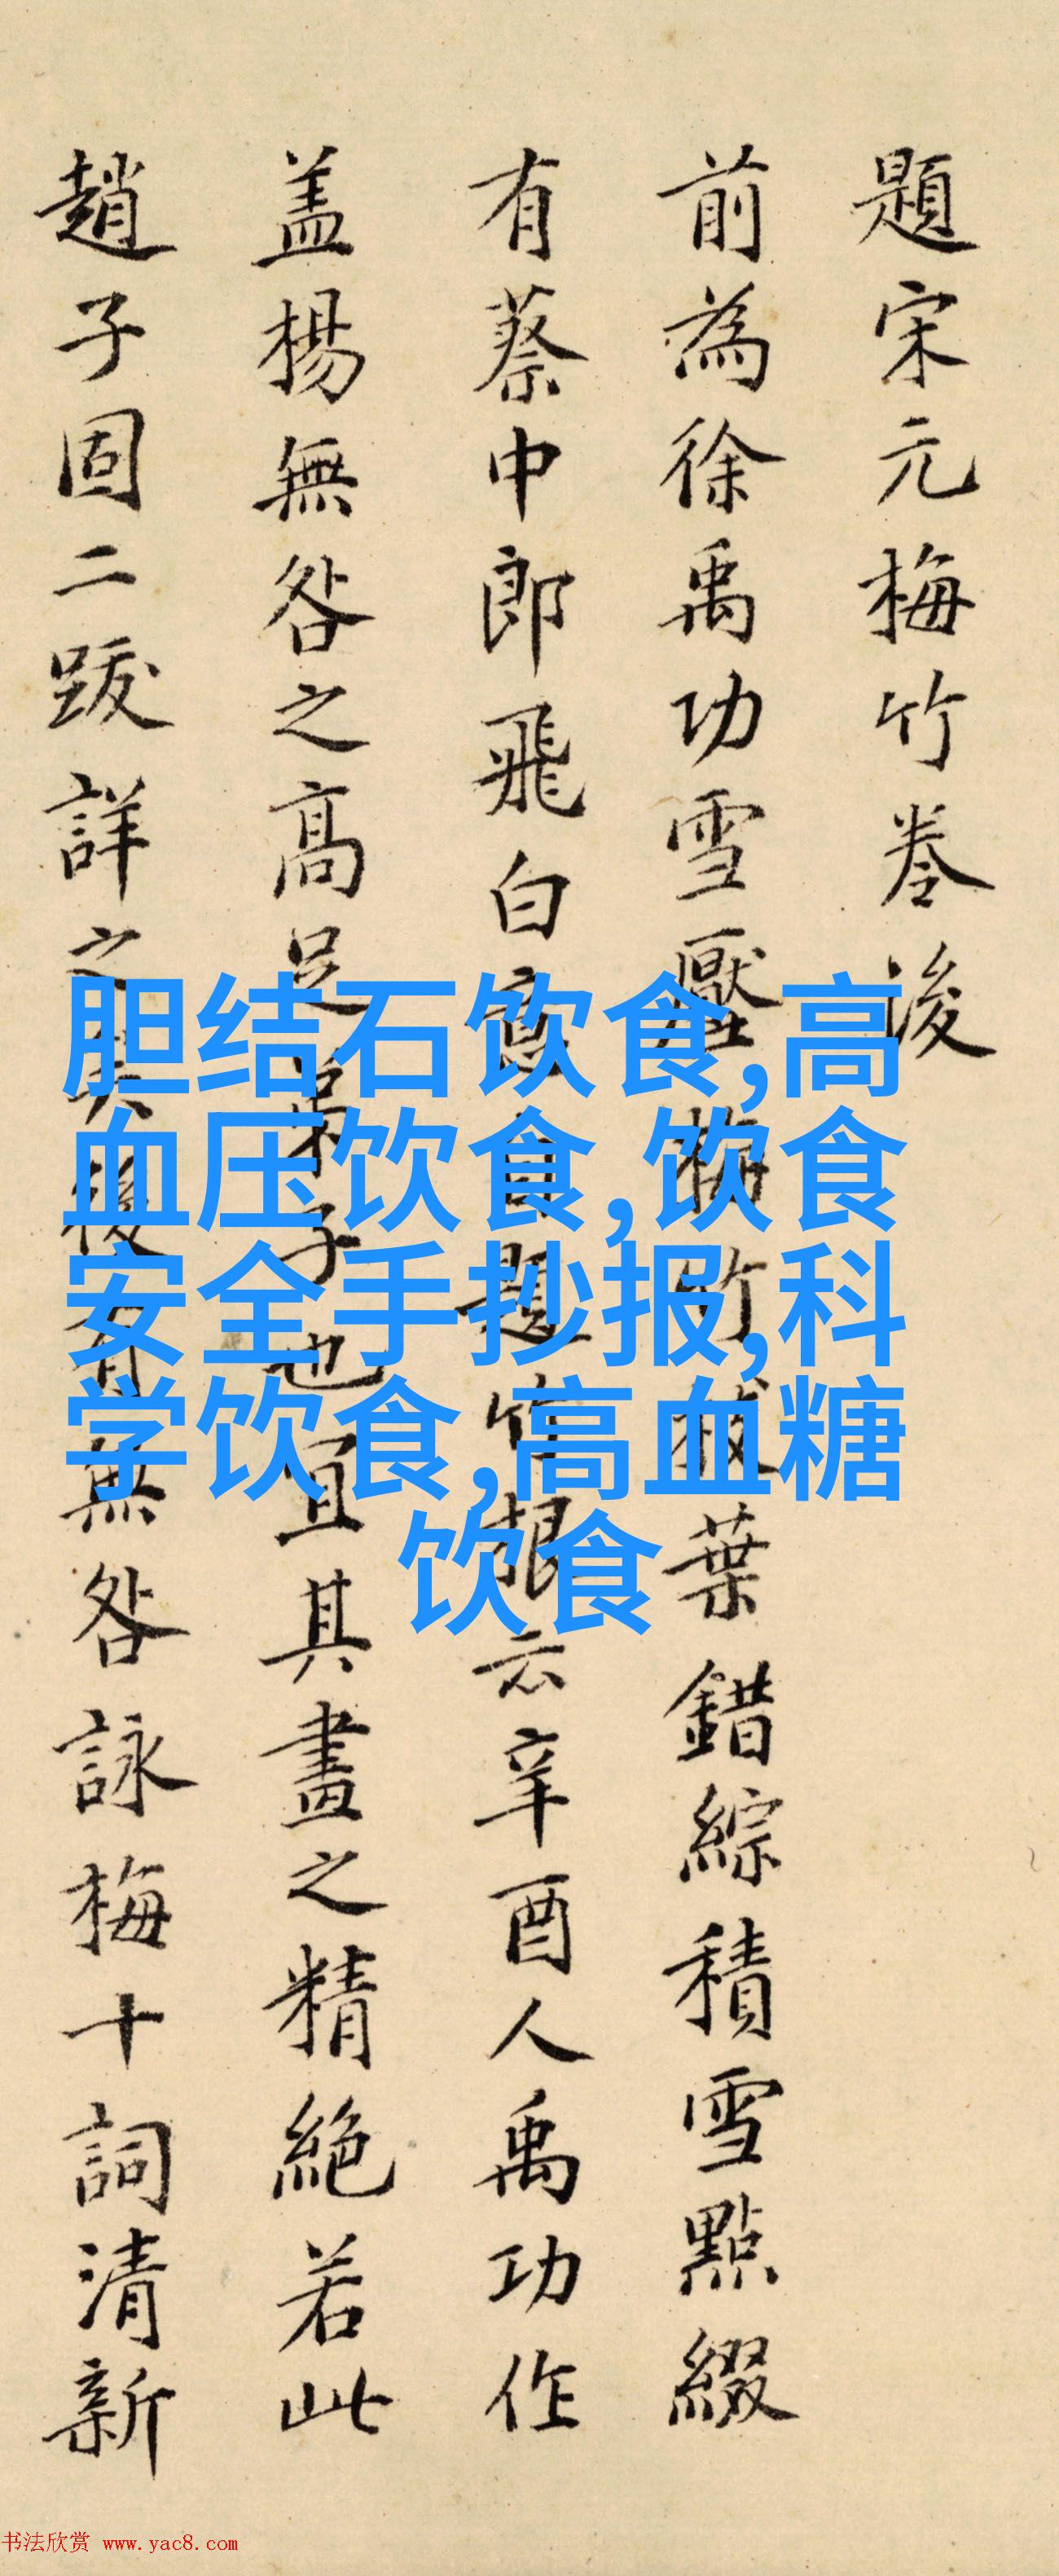 題宋元梅竹卷後
前為徐禹功雪壓梅竹枝葉錯綜積雪點綴
有蔡中郎飛白意自題竹根云辛酉人禹功作
盖楊無咎之高足弟子也宜其畫之精絕若此
趙子固二跋詳之矣後有無咎詠梅十詞清新
胆结石饮食,高
血压饮食,饮食
安全手抄报,科
学饮食,高血糖
饮食
书法欣赏 www.yac8.com